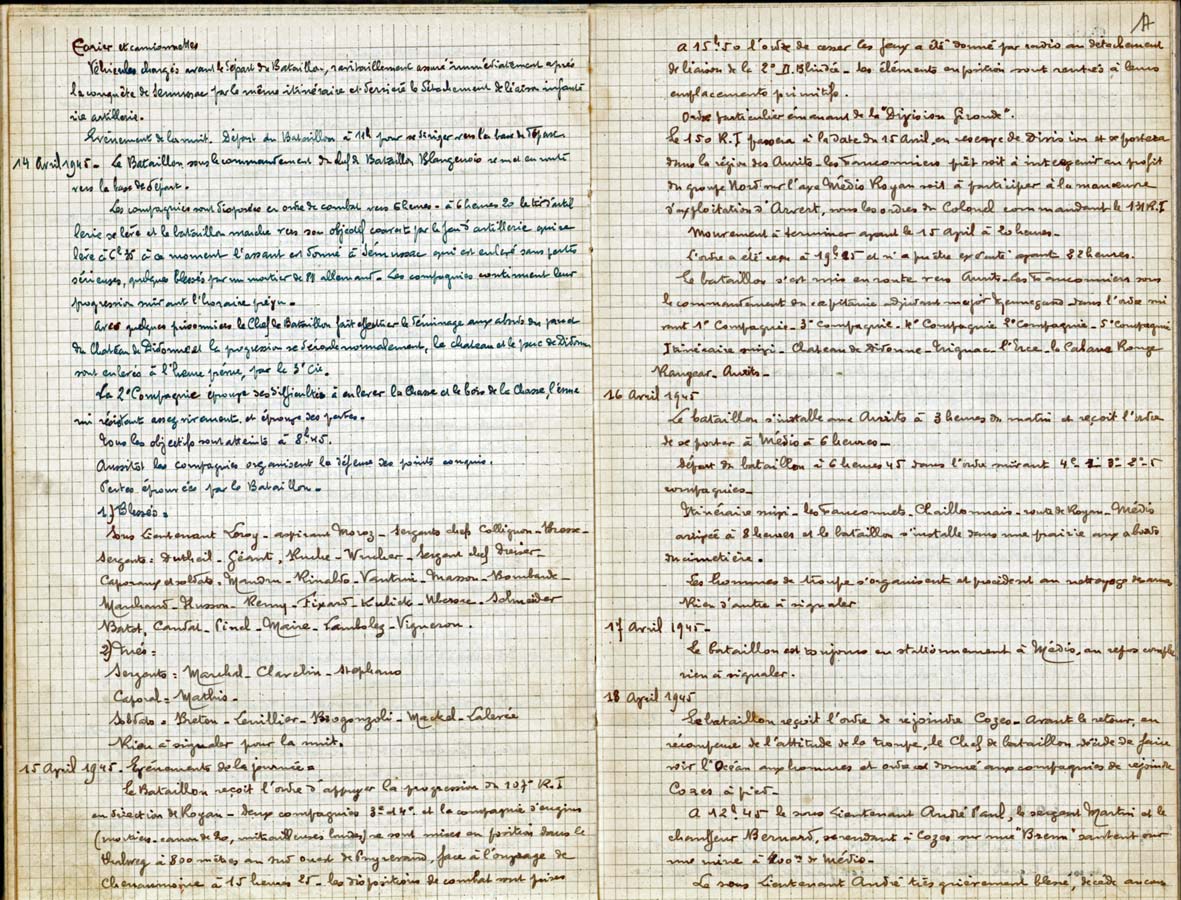 et camionnettes
Véhicules chargés avant le départ du Bataillon, ravitaillement assuré immédiatement après
la conquête de Semussac par le même itinéraire et derrière le détachement de liaison infante
rie artillerie.
Evènement de la nuit. Départ du Bataillon à 11h pour se diriger vers la base de départ
14 Avril 1945 - Le Bataillon sous le commandement du chef de Bataillon Blangenois se met en route
vers la base de départ.
Les compagnies sont disposées en ordre de combat vers 6 heures - à 6 heures 20 le tir d'artil
lerie se lève et le bataillon marche vers son objectif couvert par le feu d'artillerie qui se
lève à 6h 35 à ce moment l'assaut est donné à Sémussac qui est enlevé sans pertes
sérieuses, quelques blessés par un mortier de allemand - Les compagnies continuent leur
progression suivant l'horaire prévu -
Avec quelques prisonniers le Chef de Bataillon fait effectuer le déminage aux abords du parc et
du Chateau de Didonne et la progression se déroule normalement, le chateau et le parc de Didonne
sont enlevés à l'heure prévue, par la 3° Cie.
La 2° Compagnie éprouve des difficultés à enlever la Chasse et le bois de la Chasse, l'enne
mi résistant assez vivement, et éprouve des pertes.
Tous les objectifs sont atteints à 8h45.
Aussitôt les compagnies organisent la défense des points conquis.
Pertes éprouvées par le Bataillon -
1) Blessés =
Sous Lieutenant Leroy - aspirant Moroz - Sergents chefs Collignon -
Sergents : Dutheil - Géant, - Wucher - Sergent chef
Caporaux et soldats : Mandru - Rinaldo - Vantini - Masson - Bombarde -
Marchand - Husson - Remy - Fixard - Kulick - - Schneider
Batot, Caudat - Pinel - Maire - Lambolez - Vigneron .
2) Tués :
Sergents : Marchal - Clavelin - Stephano
Caporal = Mathis -
Soldats = Breton - Levillier - Brogonzoli - Mackel - Lalevée
Rien à signaler pour la nuit.
15 April 1945. Evénements de la journée =
Le Bataillon reçoit l'ordre d'appuyer la progression du 107° R.I
en direction de Royan - Deux compagnies 3° et 4° et la compagnie d'engins
(mortiers - canon de 20, mitrailleuses lourdes) se sont mises en position dans le
thalweg à 800 mètres au sud ouest de Puyrenaud, face à l'ouvrage de
Chenaumoine à 15 heures 25 - les dispositions de combat sont prises
A 15h50 l'ordre de cesser les feux a été donné par radio au détachement
de liaison de la 2° D. Blindée - Les éléments en position sont rentrés à leurs
emplacements primitifs.
Ordre particulier émanant de la "Division Gironde".
Le 150 R.I passera à la date du 15 Avril, en réserve de Division et se portera
dans la région des Auvits - les Fauconniers prêt soit à intervenir au profit
du groupe Nord sur l'axe Médis Royan soit à participer à la manœuvre
d'exploitation d'Arvert, sous les ordres du Colonel commandant le 131 R.I
Mouvement à terminer avant le 15 April à 20 heures -
L'ordre a été reçu à 19h25 et n'a pu être exécuté avant 22 heures.
Le bataillon s'est mis en route vers Auvits - les Fauconniers sous
le commandement du capitaine adjudant major dans l'ordre sui
vant 1° Compagnie - 3° Compagnie - 4° Compagnie 2° Compagnie - 5° Compagnie
Itinéraire suivi - Chateau de Didonne - Trignac - l'Erce - la Cabane Rouge
- Auvits -
16 Avril 1945
Le bataillon s'installe aux Auvits à 3 heures du matin et reçoit l'ordre
de se porter à Médis à 6 heures -
Départ du bataillon à 6 heures 45 dans l'ordre suivant 4° - 1 - 3° - 2° - 5
compagnies -
Itinéraire suivi - les Fauconnets - Chaillonnais - route de Royan - Médis
arrivée à 8 heures et le bataillon s'installe dans une prairie aux abords
du cimetière.
Les hommes de troupe s'organisent et procèdent au nettoyage des armes
Rien d'autre à signaler
17 Avril 1945 -
Le bataillon est toujours en stationnement à Médis, au repos complet
rien à signaler.
18 April 1945
Le bataillon reçoit l'ordre de rejoindre Cozes - Avant le retour, en
récompense de l'attitude de la troupe, le Chef de bataillon décide de faire
voir l'Océan aux hommes et ordre est donné aux compagnies de rejoindre
Cozes à pied -
A 12h45 le sous Lieutenant André Paul, le sergent Martin et le
chauffeur Bernard, se rendant à Cozes sur une "Bren" sautent sur
une mine à 200m de Médis -
Le sous Lieutenant André très grièvement blessé, décède au cours